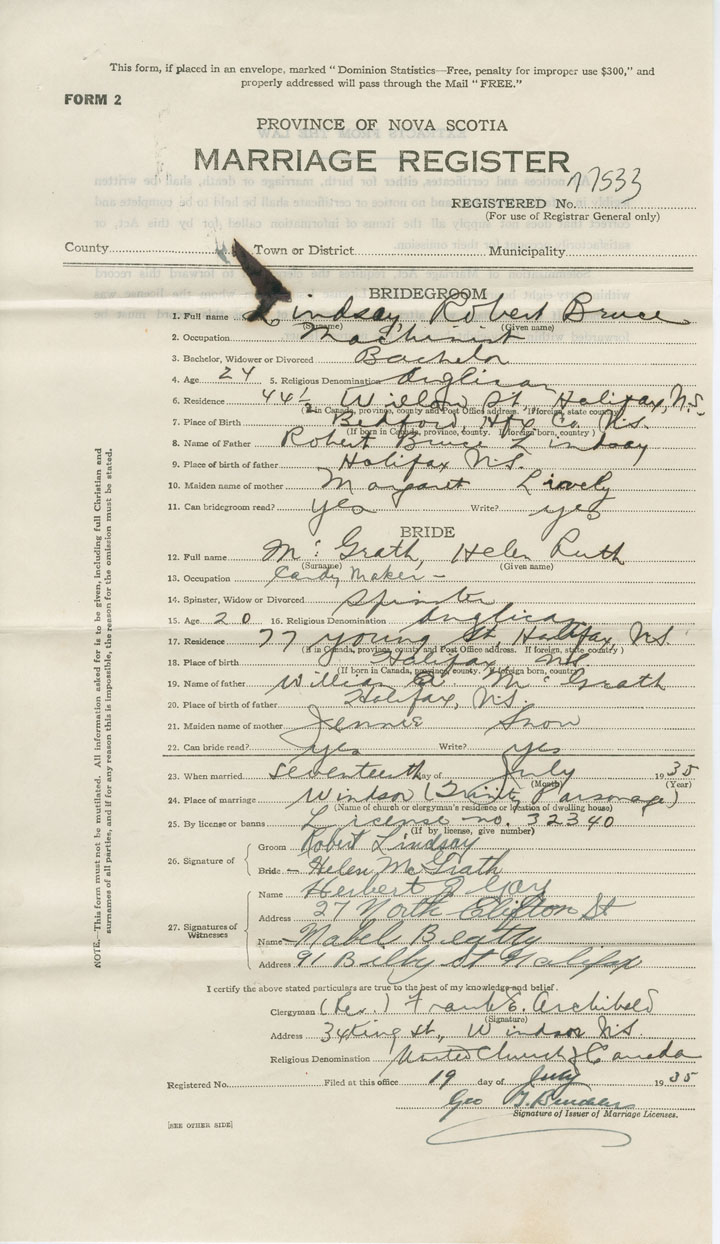 This form, if placed in an envelope, marked "Dominion Statistics—Free, penalty for improper use $300," and
properly addressed will pass through the Mail "FREE."
FORM 2
PROVINCE OF NOVA SCOTIA
MARRIAGE REGISTER
77533
REGISTERED No.
(For use of Registrar General only)
County Town or District Municipality
BRIDEGROOM
1. Full name Lindsay Robert Bruce
(Surname) (Given name)
2. Occupation Machinist
3. Bachelor, Widower or Divorced Bachelor
4. Age 24 5. Religious Denomination Anglican
6. Residence 44½ Willow St. Halifax, N.S.
(If in Canada, province, county and Post Office address. If foreign, state country)
7. Place of Birth Bedford, Hfx Co. N.S.
(If born in Canada, province, county. If foreign born, country)
8. Name of Father Robert Bruce Lindsay
9. Place of birth of father Halifax N.S.
10. Maiden name of mother Margaret Lively
11. Can bridegroom read? yes Write? yes
BRIDE
12. Full name McGrath, Helen Ruth
(Surname) (Given name)
13. Occupation Candy Maker -
14. Spinster, Widow or Divorced Spinster
15. Age 20 16. Religious Denomination Anglican
17. Residence 77 Young St, Halifax, N.S
(If in Canada, province, county and Post Office address. If foreign, state country)
18. Place of birth Halifax N.S.
(If born in Canada, province, county. If foreign born, country)
19. Name of father William A. McGrath
20. Place of birth of father Halifax, N.S.
21. Maiden name of mother Jennie Snow
22. Can bride read? yes Write? yes
23. When married Seventeenth day of July 1935
(Month) (Year)
24. Place of marriage Windsor (Trinity Parsonage)
(Name of church or clergyman's residence or location of dwelling house)
25. By license or banns License no. 32340
(If by license, give number)
26. Signature of
Groom Robert Lindsay
Bride - Helen McGrath
27. Signatures of Witnesses
Name Herbert J Gay
Address 27 North Clifton St
Name Mabel Beatty
Address 91 Bilby St Halifax
I certify the above stated particulars are true to the best of my knowledge and belief.
Clergyman (Rev.) Frank E. Archibald
(Signature)
Address 34 King St., Windsor N.S.
Religious Denomination United Church of Canada
Registered No. Filed at this office 19 day of July 1935
Geo
Signature of Issuer of Marriage Licenses.
[SEE OTHER SIDE]
NOTE.—This form must not be mutilated. All information asked for is to be given, including full Christian and
surnames of all parties, and if for any reason this is impossible, the reason for the omission must be stated.